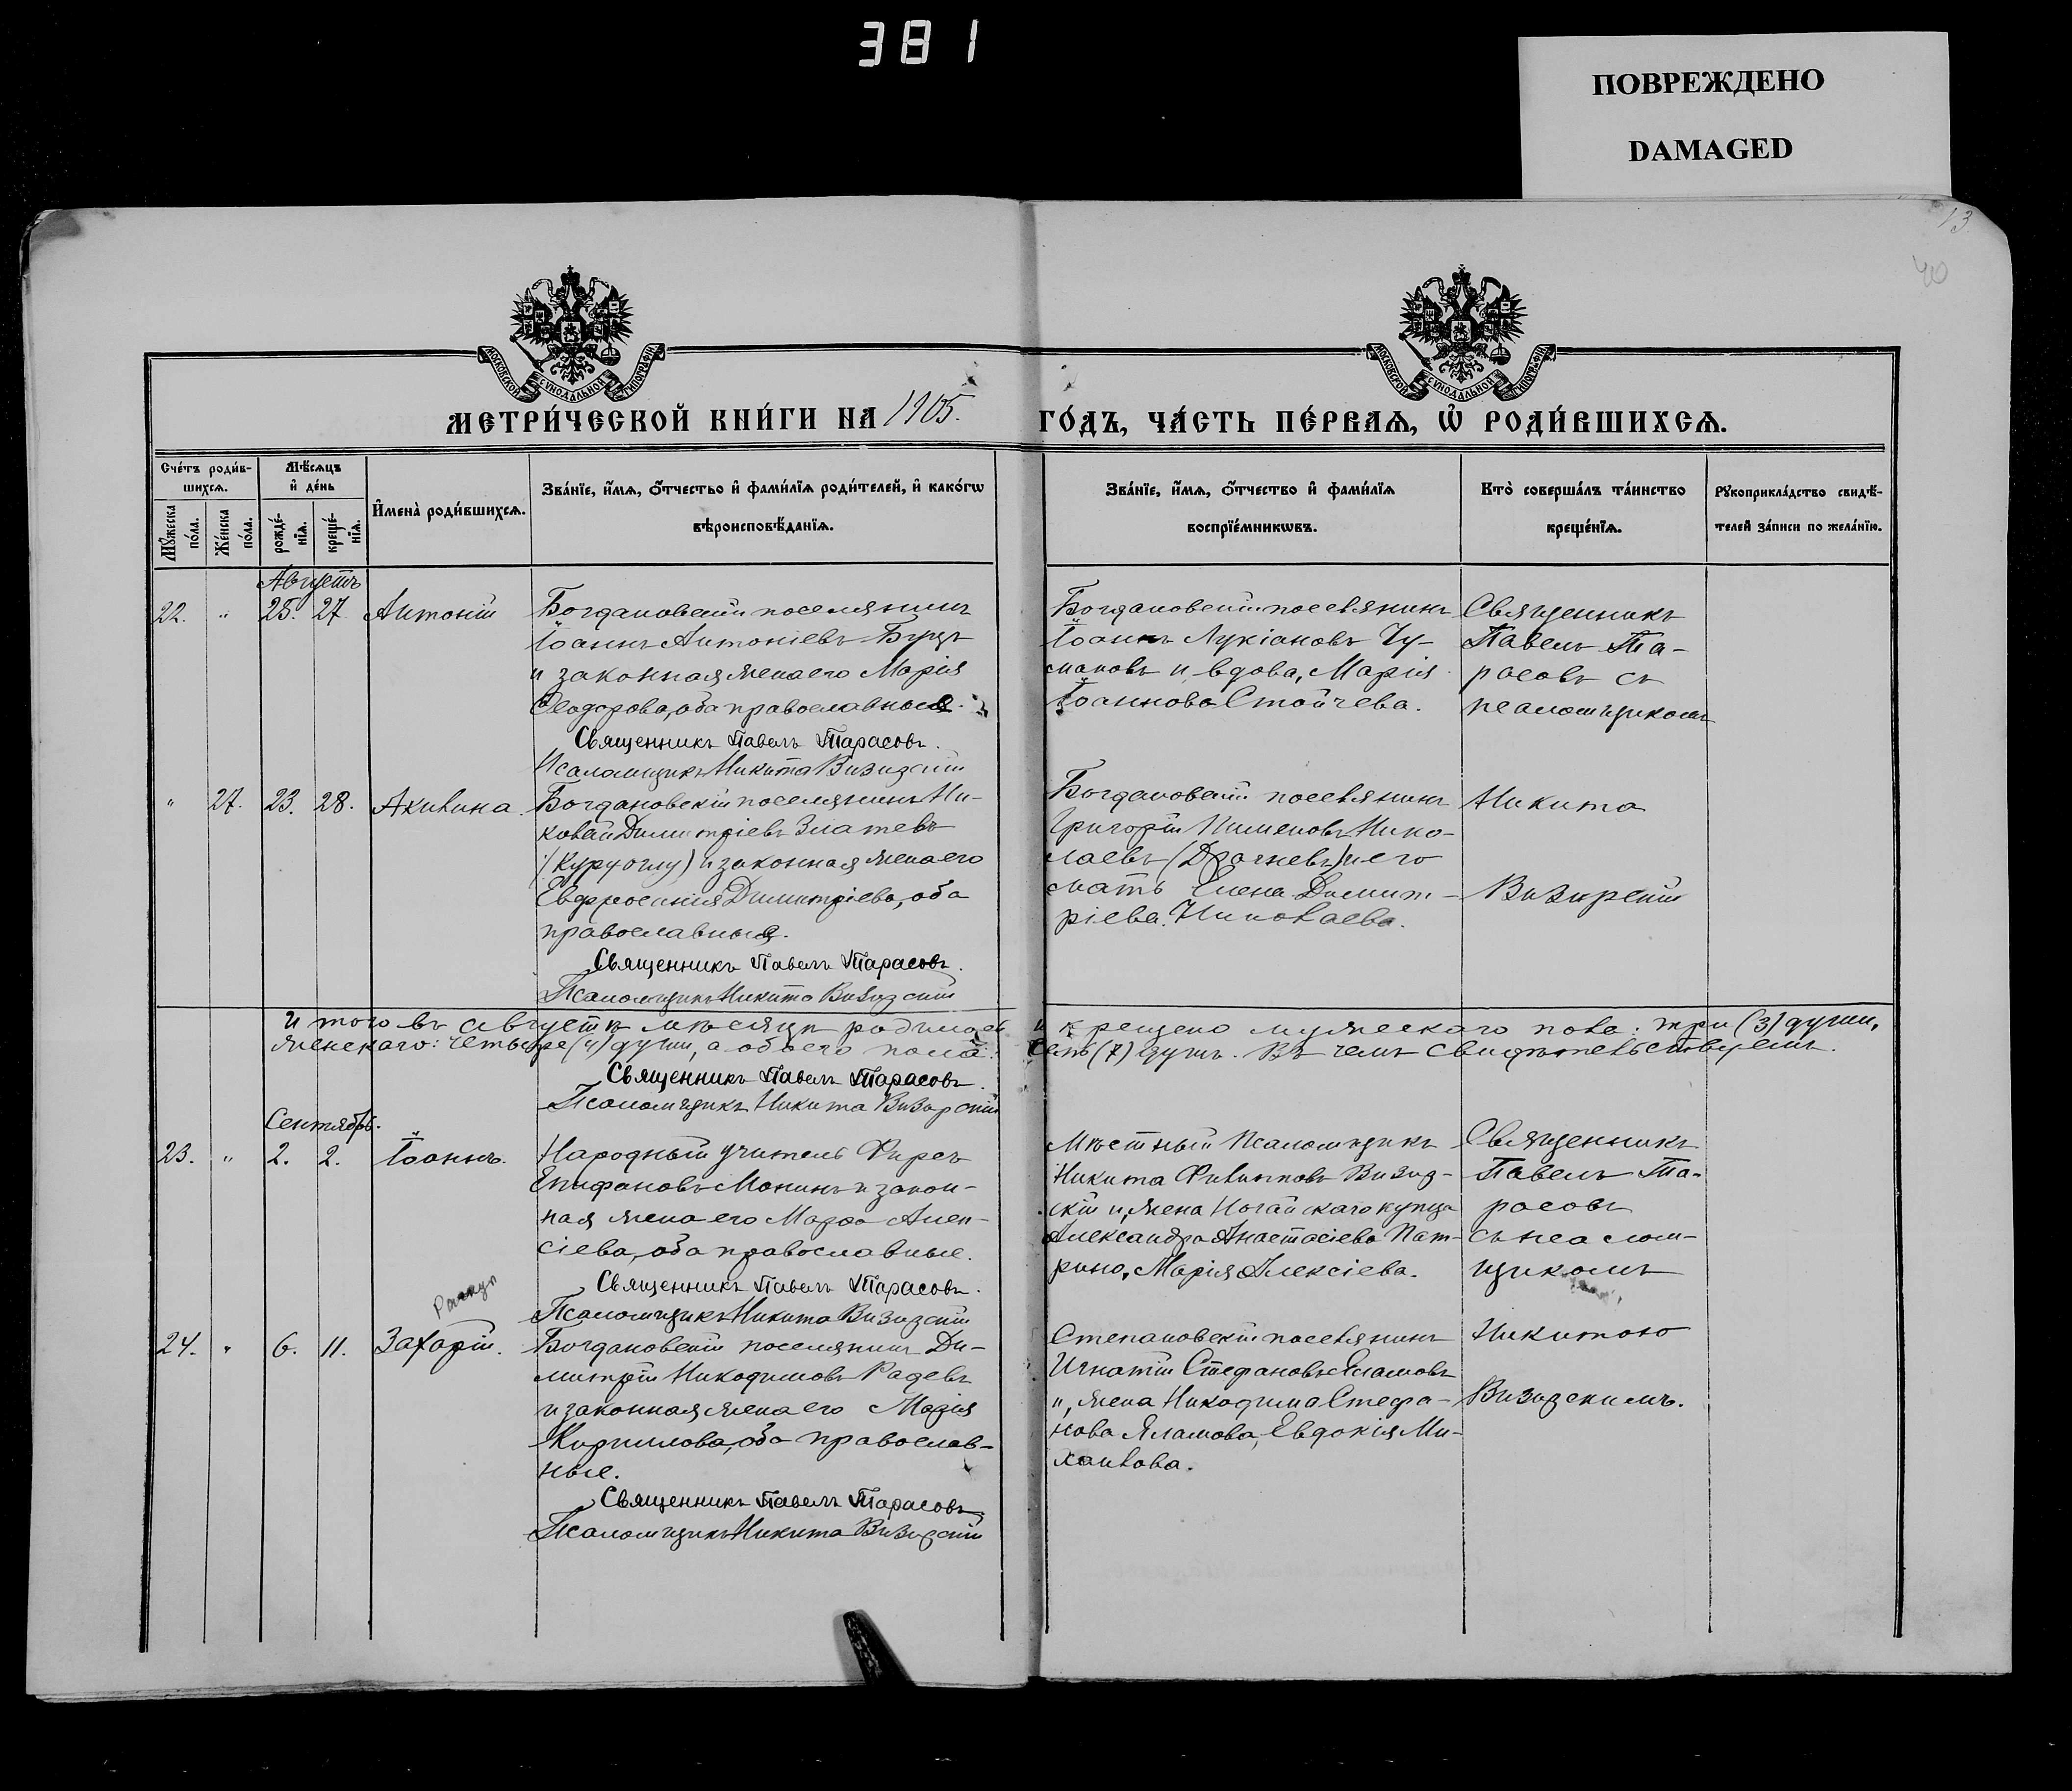 381
ПОВРЕЖДЕНО
DAMAGED
13
40
МОСКОВСКОЙ СѴНОДАЛЬНОЙ ТИПОГРАФІИ
МОСКОВСКОЙ СѴНОДАЛЬНОЙ ТИПОГРАФІИ
МЕТРИ́ЧЕСКОЙ КНИ́ГИ НА 1905. ГО́ДЪ, ЧА́СТЬ ПЕ́РВАѦ, Ѽ РОДИ́ВШИХСѦ.
Сче́тъ роди́в-
шихсѧ.
Мѣ́сѧцъ
и҆ де́нь
Мꙋ́жеска
по́ла.
Же́нска
по́ла.
рожде́-
нїѧ.
креще́-
нїѧ.
И҆мена̀ роди́вшихсѧ.
Зва́нїе, и҆́мѧ, ѻ҆́тчество и҆ фами́лїѧ роди́телей, и҆ како́гѡ
вѣроисповѣ́данїѧ.
Зва́нїе, и҆́мѧ, ѻ҆́тчество и҆ фами́лїѧ
воспрїе́мникѡвъ.
Кто̀ соверша́лъ та́инство
креще́нїѧ.
Рꙋкоприкла́дство свидѣ́-
телей за́писи по жела́нїю.
Августъ
22. " 25. 27 Антоній
Богдановскій поселянинъ
Іоаннъ Антоніевъ
и законная жена его Марія
Ѳеодорова, оба православные.
Священникъ Павелъ Тарасовъ.
Псаломщикъ Никита Визирскій
Богдановскій поселянинъ
Іоаннъ Лукіановъ Чу-
маковъ и вдова, Марія
Іоаннова Стойчева.
Священникъ
Павелъ Та-
расовъ съ
псаломщикомъ
" 27. 23. 28. Акилина.
Богдановскій поселянинъ Ни-
колай Димитріевъ Златевъ
(Куруоглу) и законная жена его
Евфросинія Димитріева, оба
православные.
Священникъ Павелъ Тарасовъ.
Псаломщикъ Никита Визирскій
Богдановскій поселянинъ
Григорій Пименовъ Нико-
лаевъ (Драгневъ) и его
мать Елена Димит-
ріева Николаева.
Никита
Визирскій
Итого въ августѣ мѣсяцѣ родилось и крещено мужескаго пола: три (3) души,
женскаго: четыре (4) души, а обоего пола: семь (7) душъ. Въ чемъ свидѣтельствуемъ.
Священникъ Павелъ Тарасовъ.
Псаломщикъ Никита Визирскій
Сентябрь.
23. " 2. 2. Іоаннъ.
Народный учитель Фирсъ
Епифановъ Монинъ и закон-
ная жена его Марѳа Алек-
сіева, оба православные.
Священникъ Павелъ Тарасовъ.
Псаломщикъ Никита Визирскій
Мѣстный Псаломщикъ
Никита Филипповъ Визир-
скій и, жена Ногайскаго купца
Александра Анастасіева Пат-
рино, Марія Алексіева.
Священникъ
Павелъ Та-
расовъ
съ псалом-
щикомъ
24. " 6. 11. Захарій.
Богдановскій поселянинъ Ди-
митрій Никодимовъ Радевъ
и законная жена его Марія
Кириллова, оба православ-
ные.
Священникъ Павелъ Тарасовъ
Псаломщикъ Никита Визирскій
Степановскій поселянинъ
Игнатій Стефановъ Яламовъ
и, жена Никодима Стефа-
нова Яламова, Евдокія Ми-
хаилова.
Никитою
Визирскимъ.